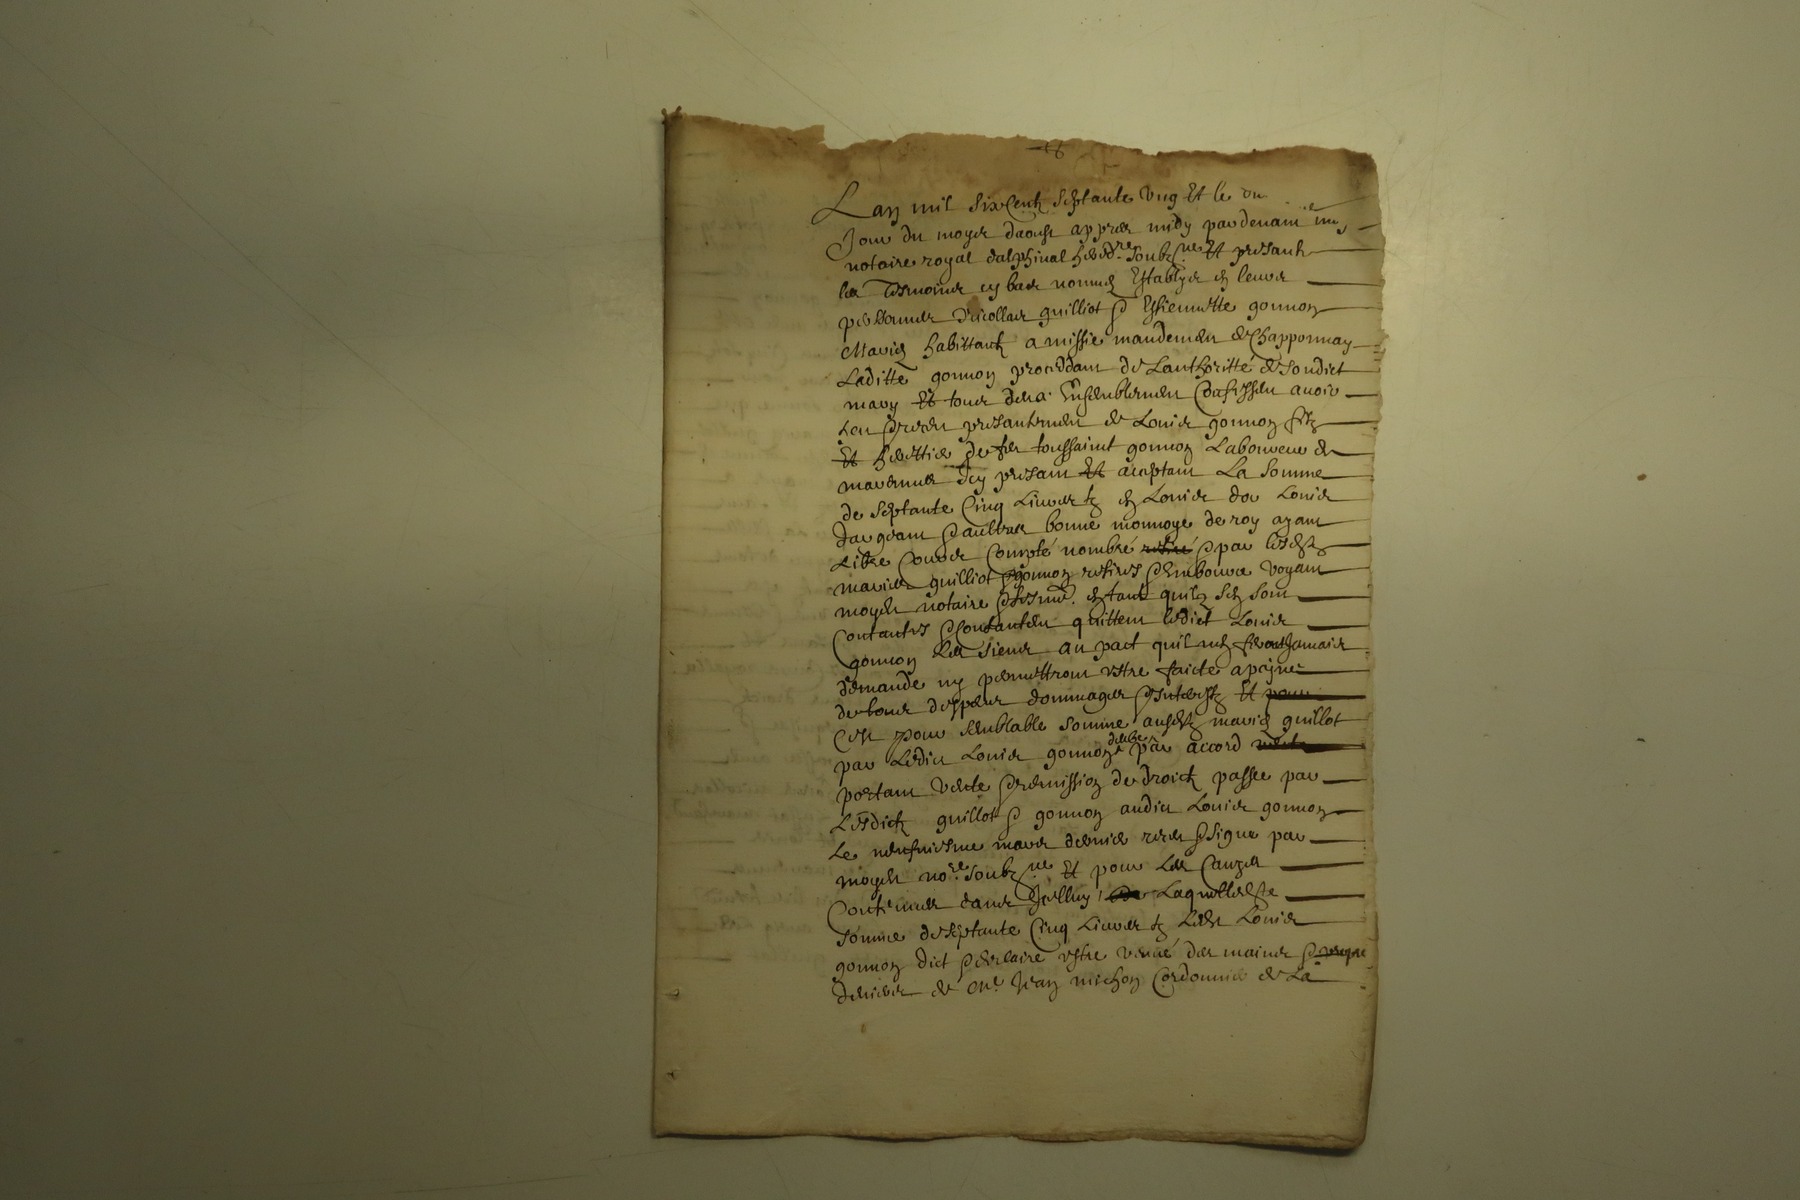 Lan mil six Centz septante Ung Et le
Jour du moys daoust appres midy pardevant moy
notaire royal dalphinal hered.re soubz.ne Et presantz
les Tesmoins cy bas nommes Establys en leurs
personnes Nicollas guilliot & Estiennette gonnon
Mariés habittantz a missie mandement de Chapponnay
Laditte gonnon proceddant de Lauthoritté de sondict
mary Et tous deux Ensemblement Confessent avoir
heu & receu presantement de Louis gonnon filz
Et herettier de feu toussaint gonnon Laboureur de
marennes Icy presant Et aceptant La Somme
de septante Cinq Livres tz en Louis dor Louis
dargeant & aultres bonne monnoye de roy ayant
Libre Cours Compté nombré retiré & par lesdictz
mariés guilliot & gonnon retirés & Emboursé voyant
moydit notaire & tesmo. en tant quilz sen sont
Contantés & Contantent quittent ledict Louis
gonnon Les siens au pact quil nen feront Jamais
demande ny permettront estre faicte a peyne
de tous despens dommages & Interestz Et pour
Cest pour semblable somme ausdictz mariés guillot
par Ledict Louis gonnon deube par accord
portant vente & remission de droictz passee par
Lesdictz guillot & gonnon audict Louis gonnon
Le neufviesme mars dernier receu & signe par
moydit no.re soubz.ne Et pour Les Causes
Contenues dans Icelluy Laquelle dicte
somme de septante Cinq Livres tz Ledict Louis
gonnon dict & declaire estre venue des mains & propre
deniers de M.e Jean michon Cordonnier de La